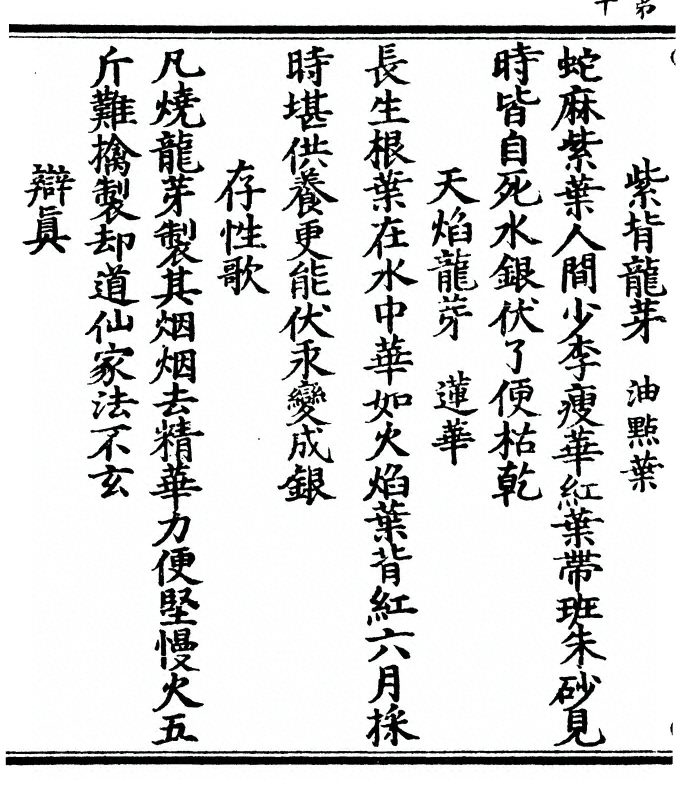 紫背龍芽　油點葉
蛇麻紫葉人間少李瘦華紅葉帶班朱砂見
時皆自死水銀伏了便枯乾
天焰龍芽　蓮華
長生根葉在水中華如火焰葉背紅六月採
時堪供養更能伏汞變成銀
存性歌
凡燒龍芽製其烟烟去精華力便堅慢火五
斤難擒製却道仙家法不玄
辯眞